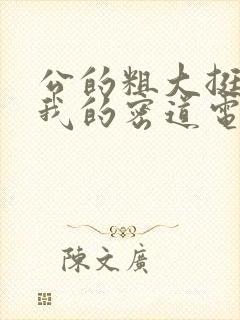 公的粗大挺
我的密道電
陳文廣